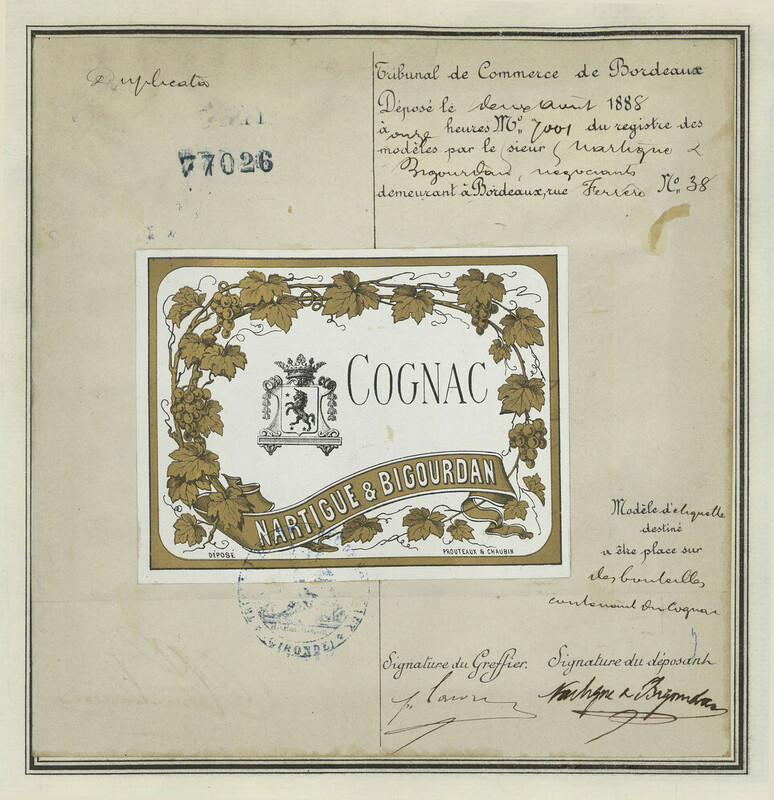 Duplicata
77026
Tribunal de Commerce de Bordeaux
Déposé le deux août 1888
à onze heures No. 7001 du registre des
modèles par le sieur Nartigue &
Bigourdan, négociants
demeurant à Bordeaux, rue Ferrère No. 38
COGNAC
NARTIGUE & BIGOURDAN
DÉPOSÉ
PROUTEAUX & CHAUBIN
Modèle d'etiquette
destiné
a être place sur
des bouteilles
contenant du Cognac
GIRONDE
Signature du Greffier. Signature du déposant
Nartigue & Bigourdan